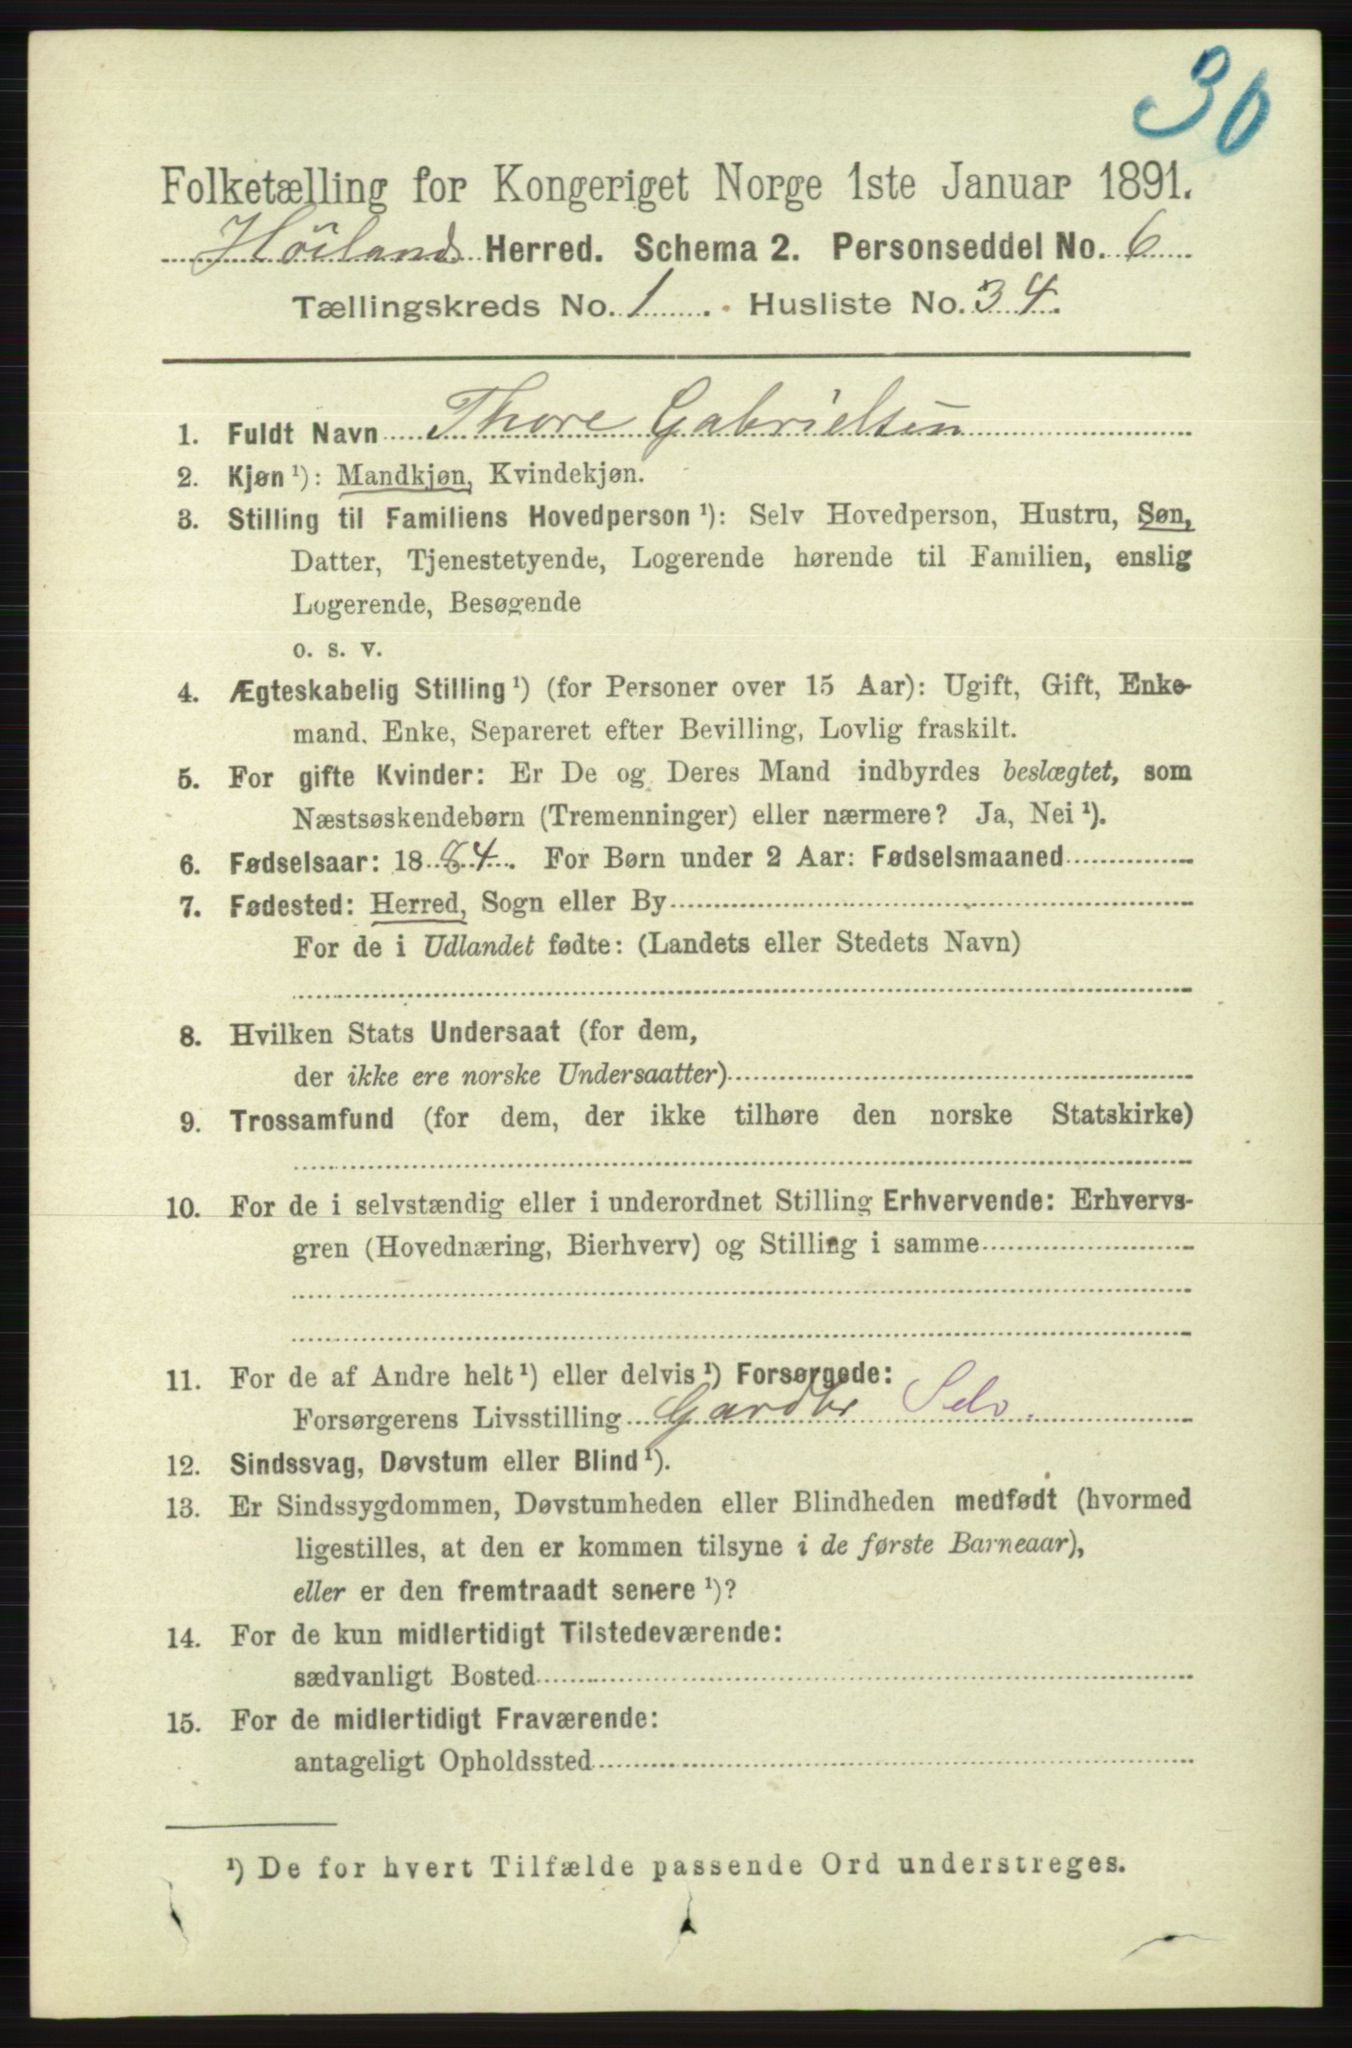 30
Folketælling for Kongeriget Norge 1ste Januar 1891.
Höiland Herred. Schema 2. Personseddel No. 6
Tællingskreds No. 1. Husliste No. 34.
1. Fuldt Navn Thore Gabrielsen
2. Kjøn ¹): Mandkjøn, Kvindekjøn.
3. Stilling til Familiens Hovedperson ¹): Selv Hovedperson, Hustru, Søn,
Datter, Tjenestetyende, Logerende hørende til Familien, enslig
Logerende, Besøgende
o. s. v.
4. Ægteskabelig Stilling ¹) (for Personer over 15 Aar): Ugift, Gift, Enke-
mand. Enke, Separeret efter Bevilling, Lovlig fraskilt.
5. For gifte Kvinder: Er De og Deres Mand indbyrdes beslægtet, som
Næstsøskendebørn (Tremenninger) eller nærmere? Ja, Nei ¹).
6. Fødselsaar: 1884. For Børn under 2 Aar: Fødselsmaaned
7. Fødested: Herred, Sogn eller By
For de i Udlandet fødte: (Landets eller Stedets Navn)
8. Hvilken Stats Undersaat (for dem,
der ikke ere norske Undersaatter)
9. Trossamfund (for dem, der ikke tilhøre den norske Statskirke)
10. For de i selvstændig eller i underordnet Stilling Erhvervende: Erhvervs-
gren (Hovednæring, Bierhverv) og Stilling i samme
11. For de af Andre helt ¹) eller delvis ¹) Forsørgede:
Forsørgerens Livsstilling Gardbr Selv.
12. Sindssvag, Døvstum eller Blind ¹).
13. Er Sindssygdommen, Døvstumheden eller Blindheden medfødt (hvormed
ligestilles, at den er kommen tilsyne i de første Barneaar),
eller er den fremtraadt senere ¹)?
14. For de kun midlertidigt Tilstedeværende:
sædvanligt Bosted
15. For de midlertidigt Fraværende:
antageligt Opholdssted
¹) De for hvert Tilfælde passende Ord understreges.